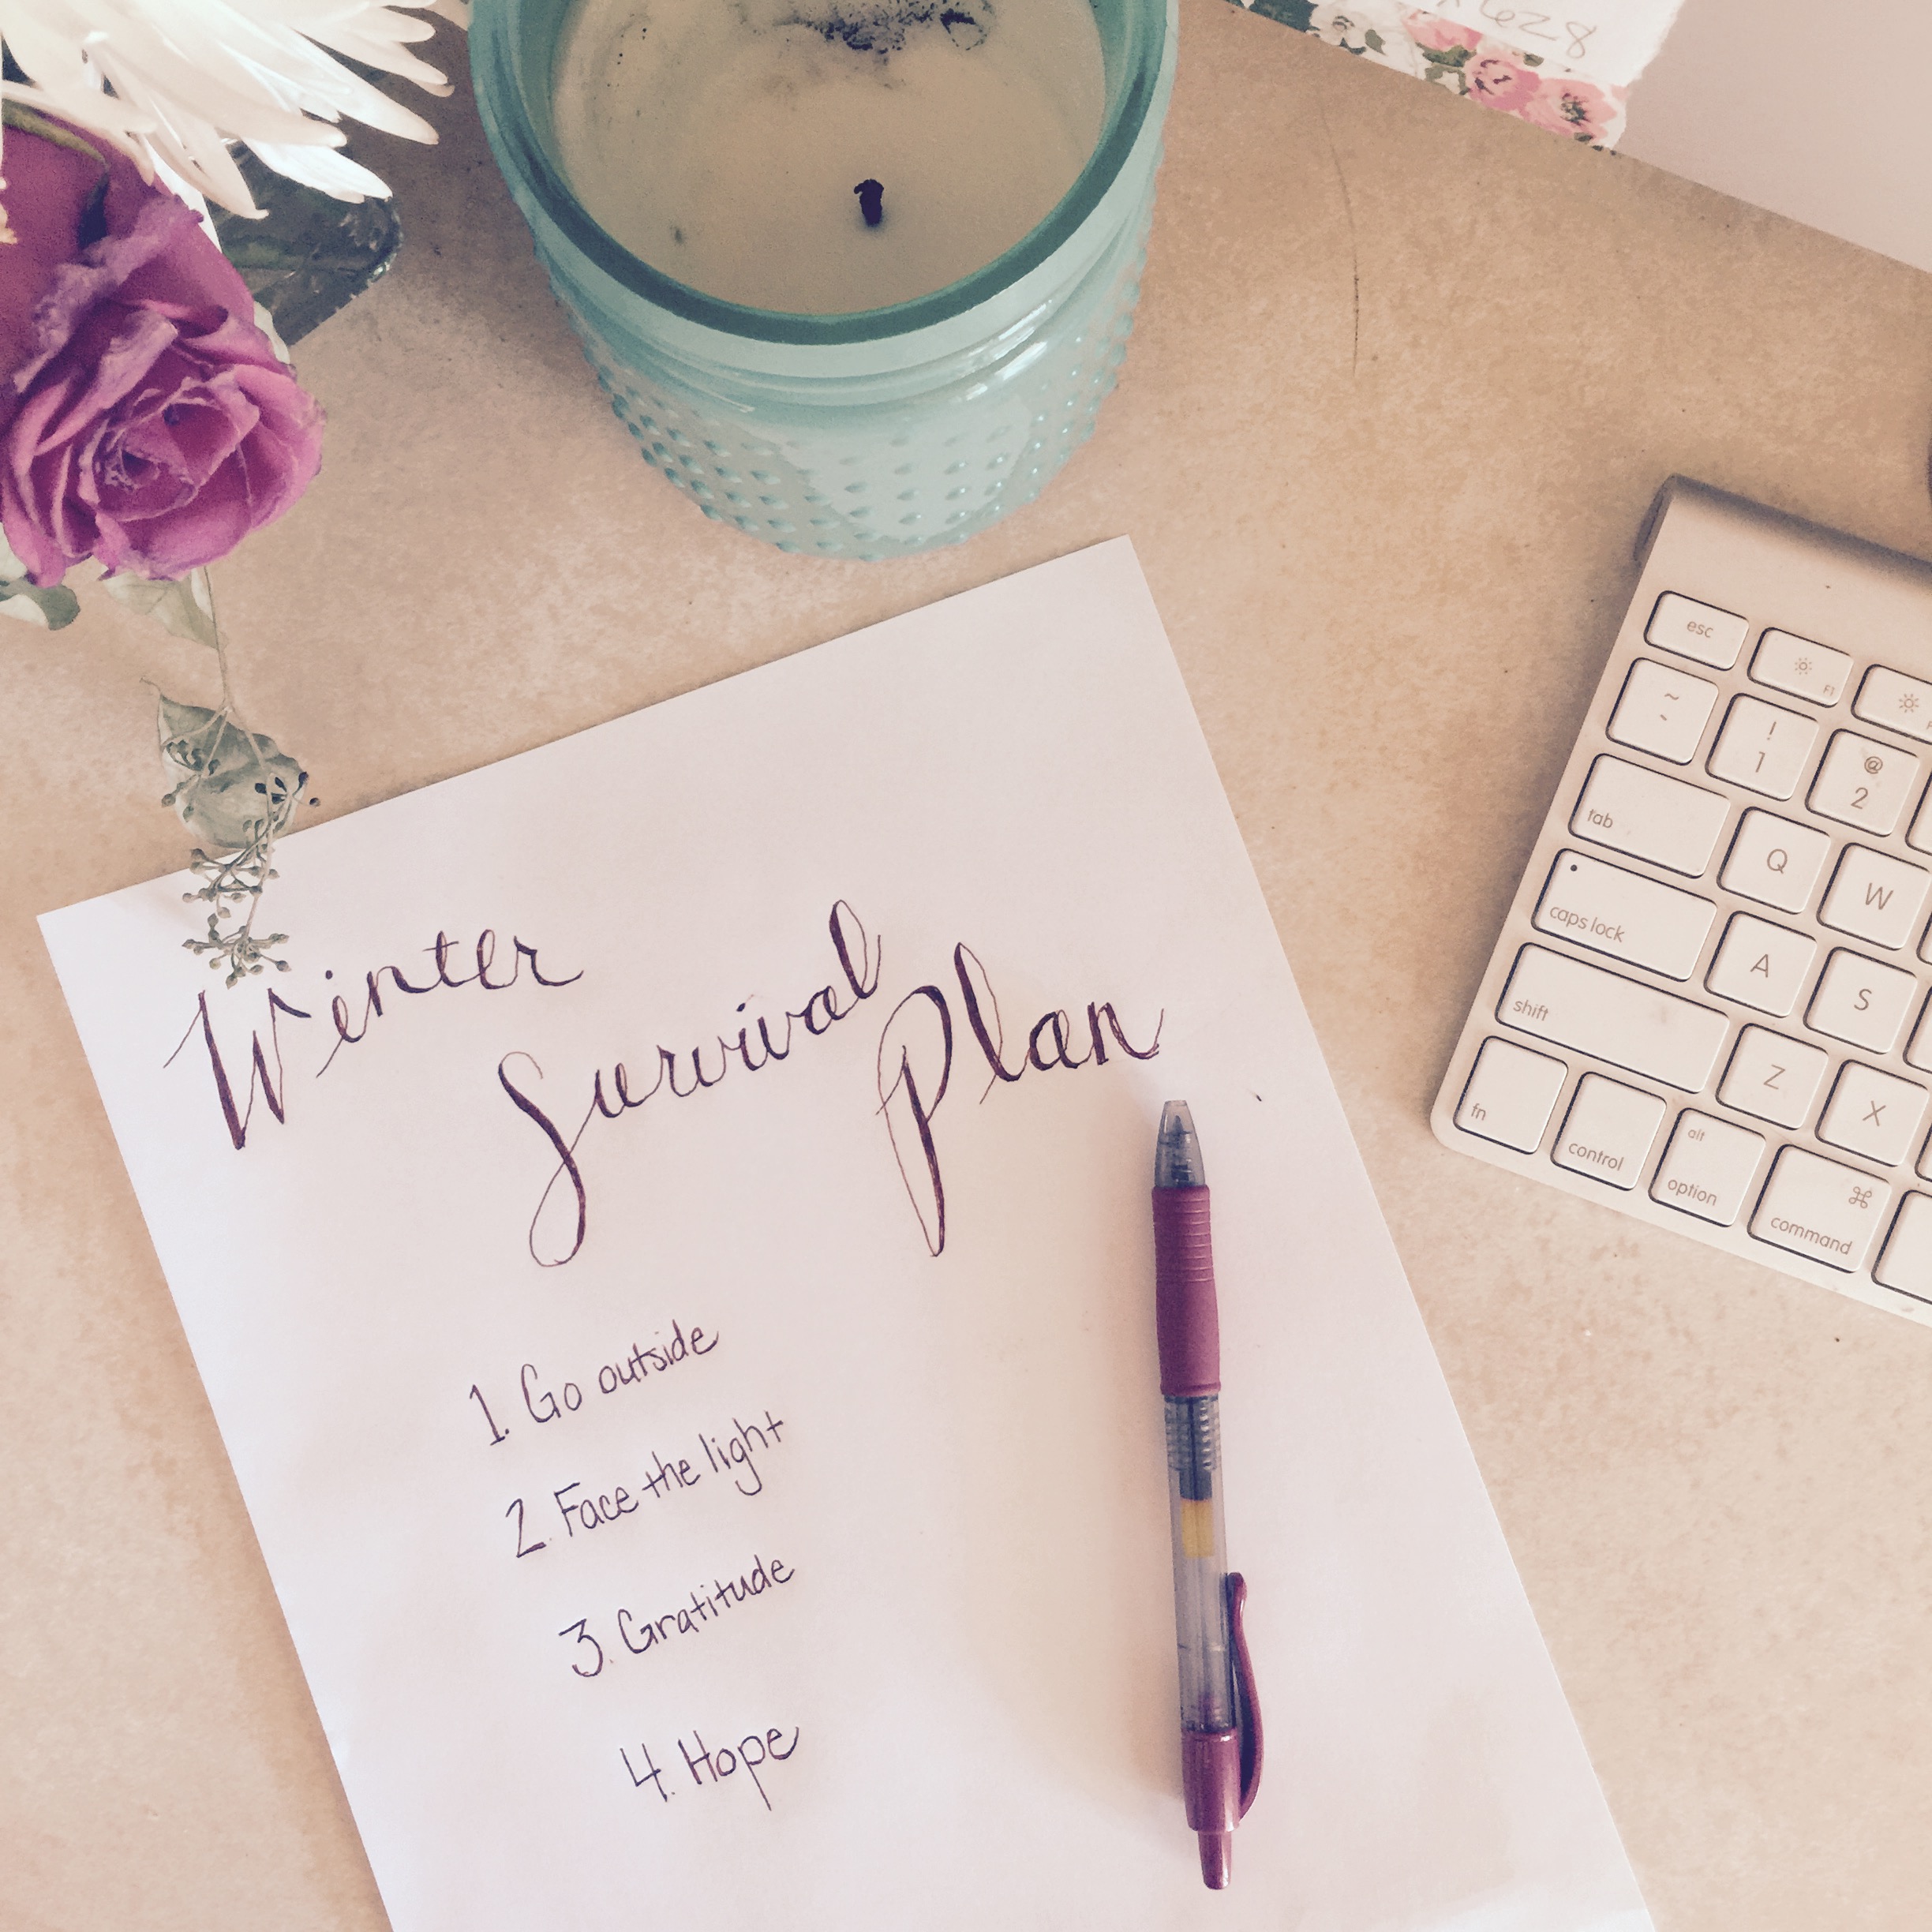 628
Winter
Survival
Plan
1. Go outside
2. Face the light
3. Gratitude
4. Hope
esc
F1
~
`
!
1
@
2
tab
Q
W
caps lock
A
S
shift
Z
X
fn
control
alt
option
⌘
command